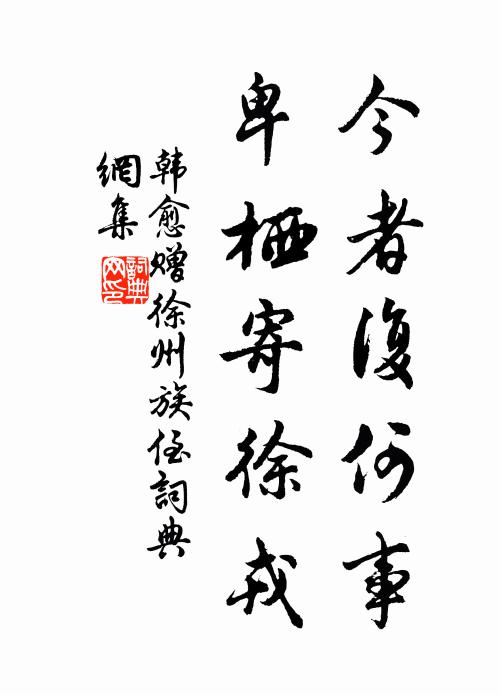 今者復何事
卑栖寄徐戎
韩愈赠徐州族侄詞典
網集
詞典網印